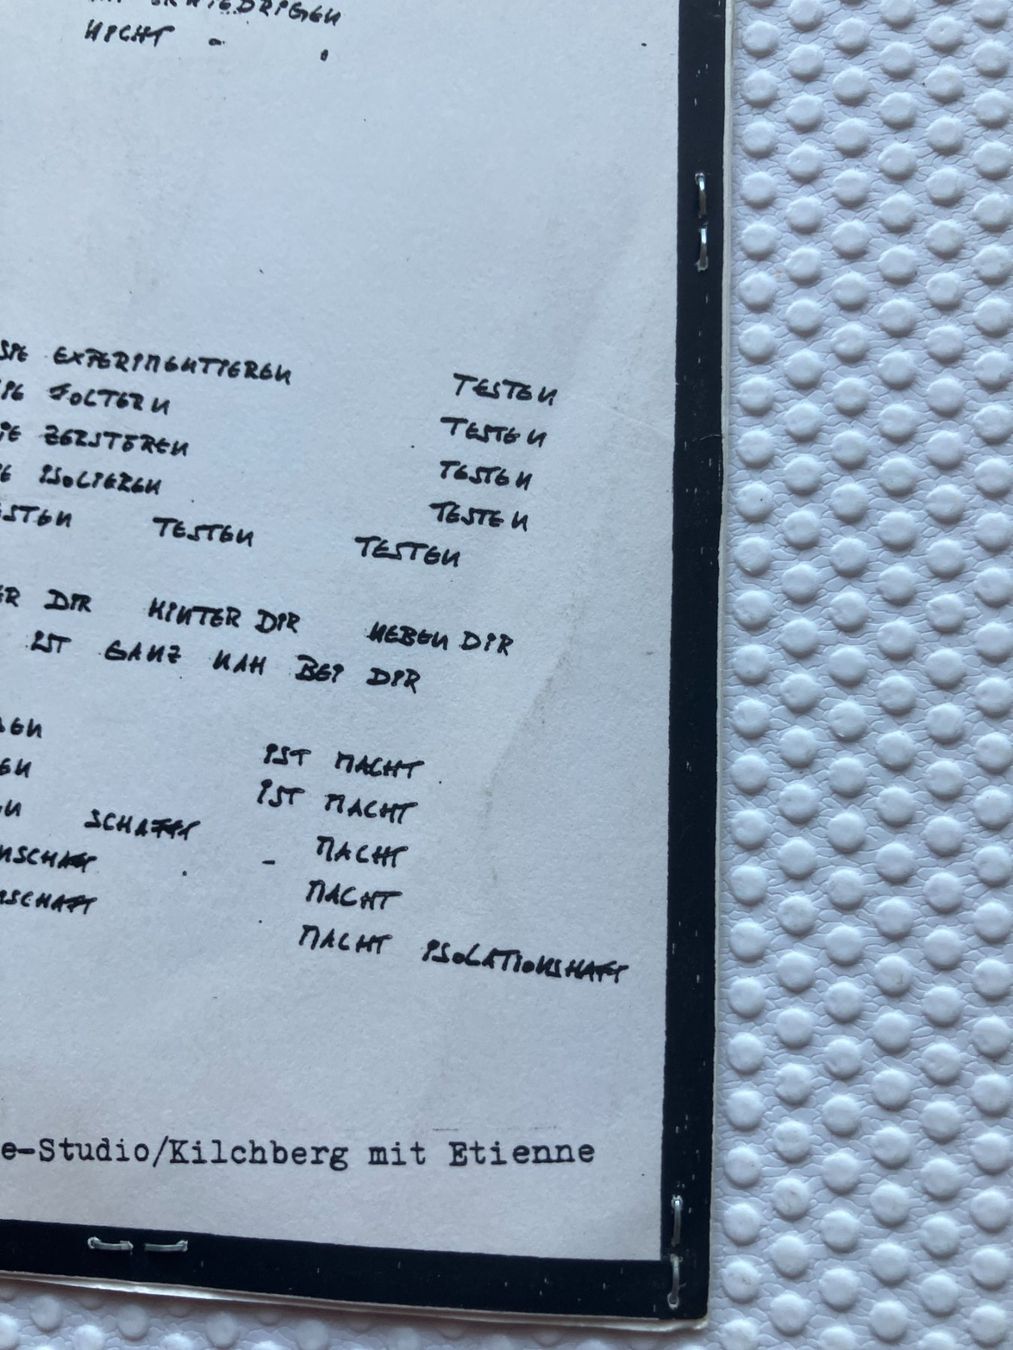 NICHT -
SIE EXPERIMENTIEREN TESTEN
FOLTERN TESTEN
ZERSTÖREN TESTEN
ISOLIEREN TESTEN
TESTEN TESTEN
DIR HINTER DIR NEBEN DIR
IST GANZ NAH BEI DIR
IST MACHT
IST MACHT
SCHAFFT MACHT
- MACHT
MACHT ISOLATIONSHAFT
e-Studio/Kilchberg mit Etienne